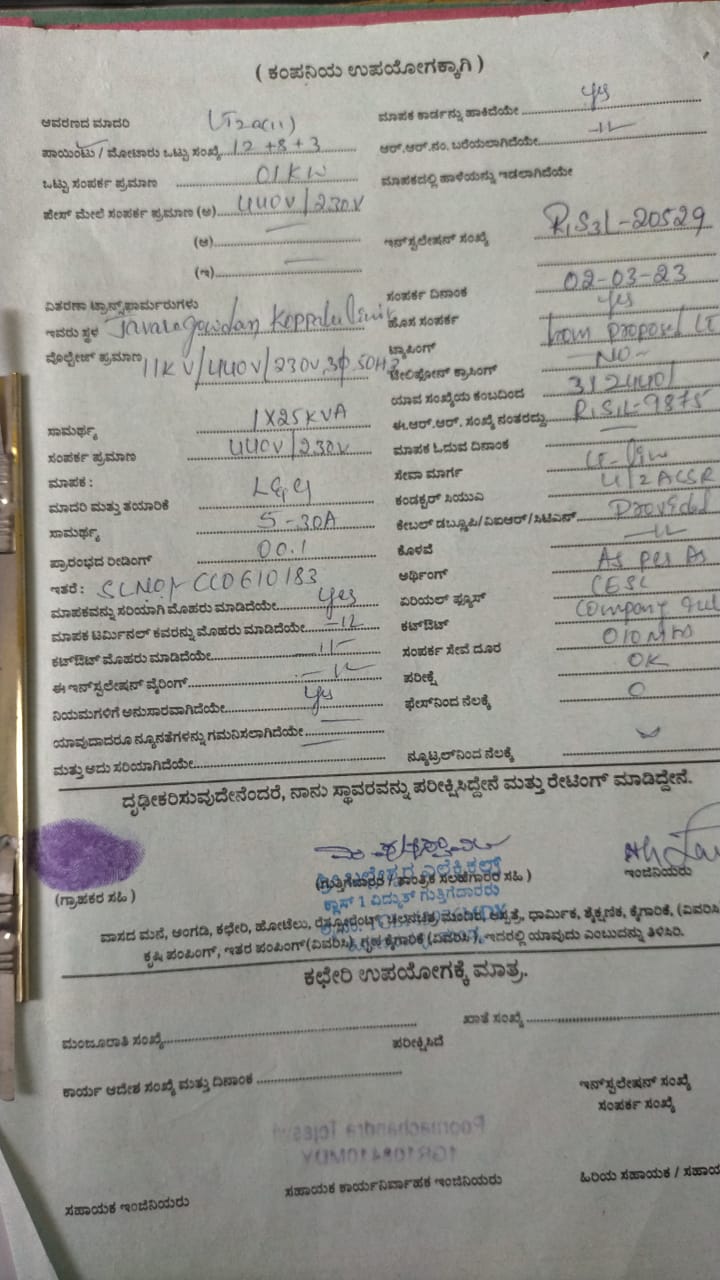 ( ಕಂಪನಿಯ ಉಪಯೋಗಕ್ಕಾಗಿ )
ಆವರಣದ ಮಾದರಿ LT2a(ii)
ಪಾಯಿಂಟು / ಮೋಟಾರು ಒಟ್ಟು ಸಂಖ್ಯೆ 12 +8 +3
ಒಟ್ಟು ಸಂಪರ್ಕ ಪ್ರಮಾಣ 01 KW
ಫೇಸ್ ಮೇಲೆ ಸಂಪರ್ಕ ಪ್ರಮಾಣ (ಅ) 440V/230V
(ಆ)
(ಇ)
ವಿತರಣಾ ಟ್ರಾನ್ಸ್‌ಫಾರ್ಮರುಗಳು
ಇವರು ಸ್ಥಳ Javaregowdan Koppalu
ವೋಲ್ಟೇಜ್ ಪ್ರಮಾಣ 11KV/440V/230V, 3φ, 50HZ
ಸಾಮರ್ಥ್ಯ 1X25KVA
ಸಂಪರ್ಕ ಪ್ರಮಾಣ 440V/230V
ಮಾಪಕ :
ಮಾದರಿ ಮತ್ತು ತಯಾರಿಕೆ L&G
ಸಾಮರ್ಥ್ಯ 5-30A
ಪ್ರಾರಂಭದ ರೀಡಿಂಗ್ 00.1
ಇತರೆ : SLNO: CC0610183
ಮಾಪಕವನ್ನು ಸರಿಯಾಗಿ ಮೊಹರು ಮಾಡಿದೆಯೇ Yes
ಮಾಪಕ ಟರ್ಮಿನಲ್ ಕವರನ್ನು ಮೊಹರು ಮಾಡಿದೆಯೇ -11-
ಕಟ್‌ಔಟ್ ಮೊಹರು ಮಾಡಿದೆಯೇ -11-
ಈ ಇನ್‌ಸ್ಟಲೇಷನ್ ವೈರಿಂಗ್ -11-
ನಿಯಮಗಳಿಗೆ ಅನುಸಾರವಾಗಿದೆಯೇ Yes
ಯಾವುದಾದರೂ ನ್ಯೂನತೆಗಳನ್ನು ಗಮನಿಸಲಾಗಿದೆಯೇ
ಮತ್ತು ಅದು ಸರಿಯಾಗಿದೆಯೇ
ಮಾಪಕ ಕಾರ್ಡನ್ನು ಹಾಕಿದೆಯೇ Yes
ಆರ್.ಆರ್.ನಂ. ಬರೆಯಲಾಗಿದೆಯೇ -11-
ಮಾಪಕದಲ್ಲಿ ಹಾಳೆಯನ್ನು ಇಡಲಾಗಿದೆಯೇ
ಇನ್‌ಸ್ಟಲೇಷನ್ ಸಂಖ್ಯೆ R,S3L-20529
ಸಂಪರ್ಕ ದಿನಾಂಕ 02-03-23
ಹೊಸ ಸಂಪರ್ಕ Yes
ಟ್ಯಾಪಿಂಗ್ from proposed LT
ಟೆಲಿಫೋನ್ ಕ್ರಾಸಿಂಗ್ -NO-
ಯಾವ ಸಂಖ್ಯೆಯ ಕಂಬದಿಂದ
ಈ.ಆರ್.ಆರ್. ಸಂಖ್ಯೆ ನಂತರದ್ದು R,S,L-9875
ಮಾಪಕ ಓದುವ ದಿನಾಂಕ
ಸೇವಾ ಮಾರ್ಗ LT-line
ಕಂಡಕ್ಟರ್ ಸಿಯುವಿ 4/2 ACSR
ಕೇಬಲ್ ಡಬ್ಲೂಪಿ/ವಿಐಆರ್/ಸಿಟಿಎಸ್ Provided
ಕೊಳವೆ -11-
ಅರ್ಥಿಂಗ್ As per
ಏರಿಯಲ್ ಫ್ಯೂಸ್ CESC
ಕಟ್‌ಔಟ್ Company
ಸಂಪರ್ಕ ಸೇವೆ ದೂರ 010 Mts
ಪರೀಕ್ಷೆ OK
ಫೇಸ್‌ನಿಂದ ನೆಲಕ್ಕೆ 0
ನ್ಯೂಟ್ರಲ್‌ನಿಂದ ನೆಲಕ್ಕೆ
ದೃಢೀಕರಿಸುವುದೇನೆಂದರೆ, ನಾನು ಸ್ಥಾವರವನ್ನು ಪರೀಕ್ಷಿಸಿದ್ದೇನೆ ಮತ್ತು ರೇಟಿಂಗ್ ಮಾಡಿದ್ದೇನೆ.
(ಗ್ರಾಹಕರ ಸಹಿ)
(ಗುತ್ತಿಗೆದಾರರ / ತಾಂತ್ರಿಕ ಸಲಹೆಗಾರರ ಸಹಿ )
ಇಂಜಿನಿಯರು
ಕ್ಲಾಸ್ 1 ವಿದ್ಯುತ್ ಗುತ್ತಿಗೆದಾರರು
ವಾಸದ ಮನೆ, ಅಂಗಡಿ, ಕಛೇರಿ, ಹೋಟೆಲು, ರೆಸ್ಟೋರೆಂಟ್, ಚಲನಚಿತ್ರ ಮಂದಿರ, ಆಸ್ಪತ್ರೆ, ಧಾರ್ಮಿಕ, ಶೈಕ್ಷಣಿಕ, ಕೈಗಾರಿಕೆ, (ವಿವರಿಸಿ
ಕೃಷಿ ಪಂಪಿಂಗ್, ಇತರ ಪಂಪಿಂಗ್(ವಿವರಿಸಿ), ಗೃಹ ಕೈಗಾರಿಕೆ (ವಿವರಿಸಿ), ಇದರಲ್ಲಿ ಯಾವುದು ಎಂಬುದನ್ನು ತಿಳಿಸಿರಿ.
ಕಛೇರಿ ಉಪಯೋಗಕ್ಕೆ ಮಾತ್ರ.
ಮಂಜೂರಾತಿ ಸಂಖ್ಯೆ
ಖಾತೆ ಸಂಖ್ಯೆ
ಪರೀಕ್ಷಿಸಿದೆ
ಕಾರ್ಯ ಆದೇಶ ಸಂಖ್ಯೆ ಮತ್ತು ದಿನಾಂಕ
ಇನ್‌ಸ್ಟಲೇಷನ್ ಸಂಖ್ಯೆ
ಸಂಪರ್ಕ ಸಂಖ್ಯೆ
ಸಹಾಯಕ ಇಂಜಿನಿಯರು
ಸಹಾಯಕ ಕಾರ್ಯನಿರ್ವಾಹಕ ಇಂಜಿನಿಯರು
ಹಿರಿಯ ಸಹಾಯಕ /